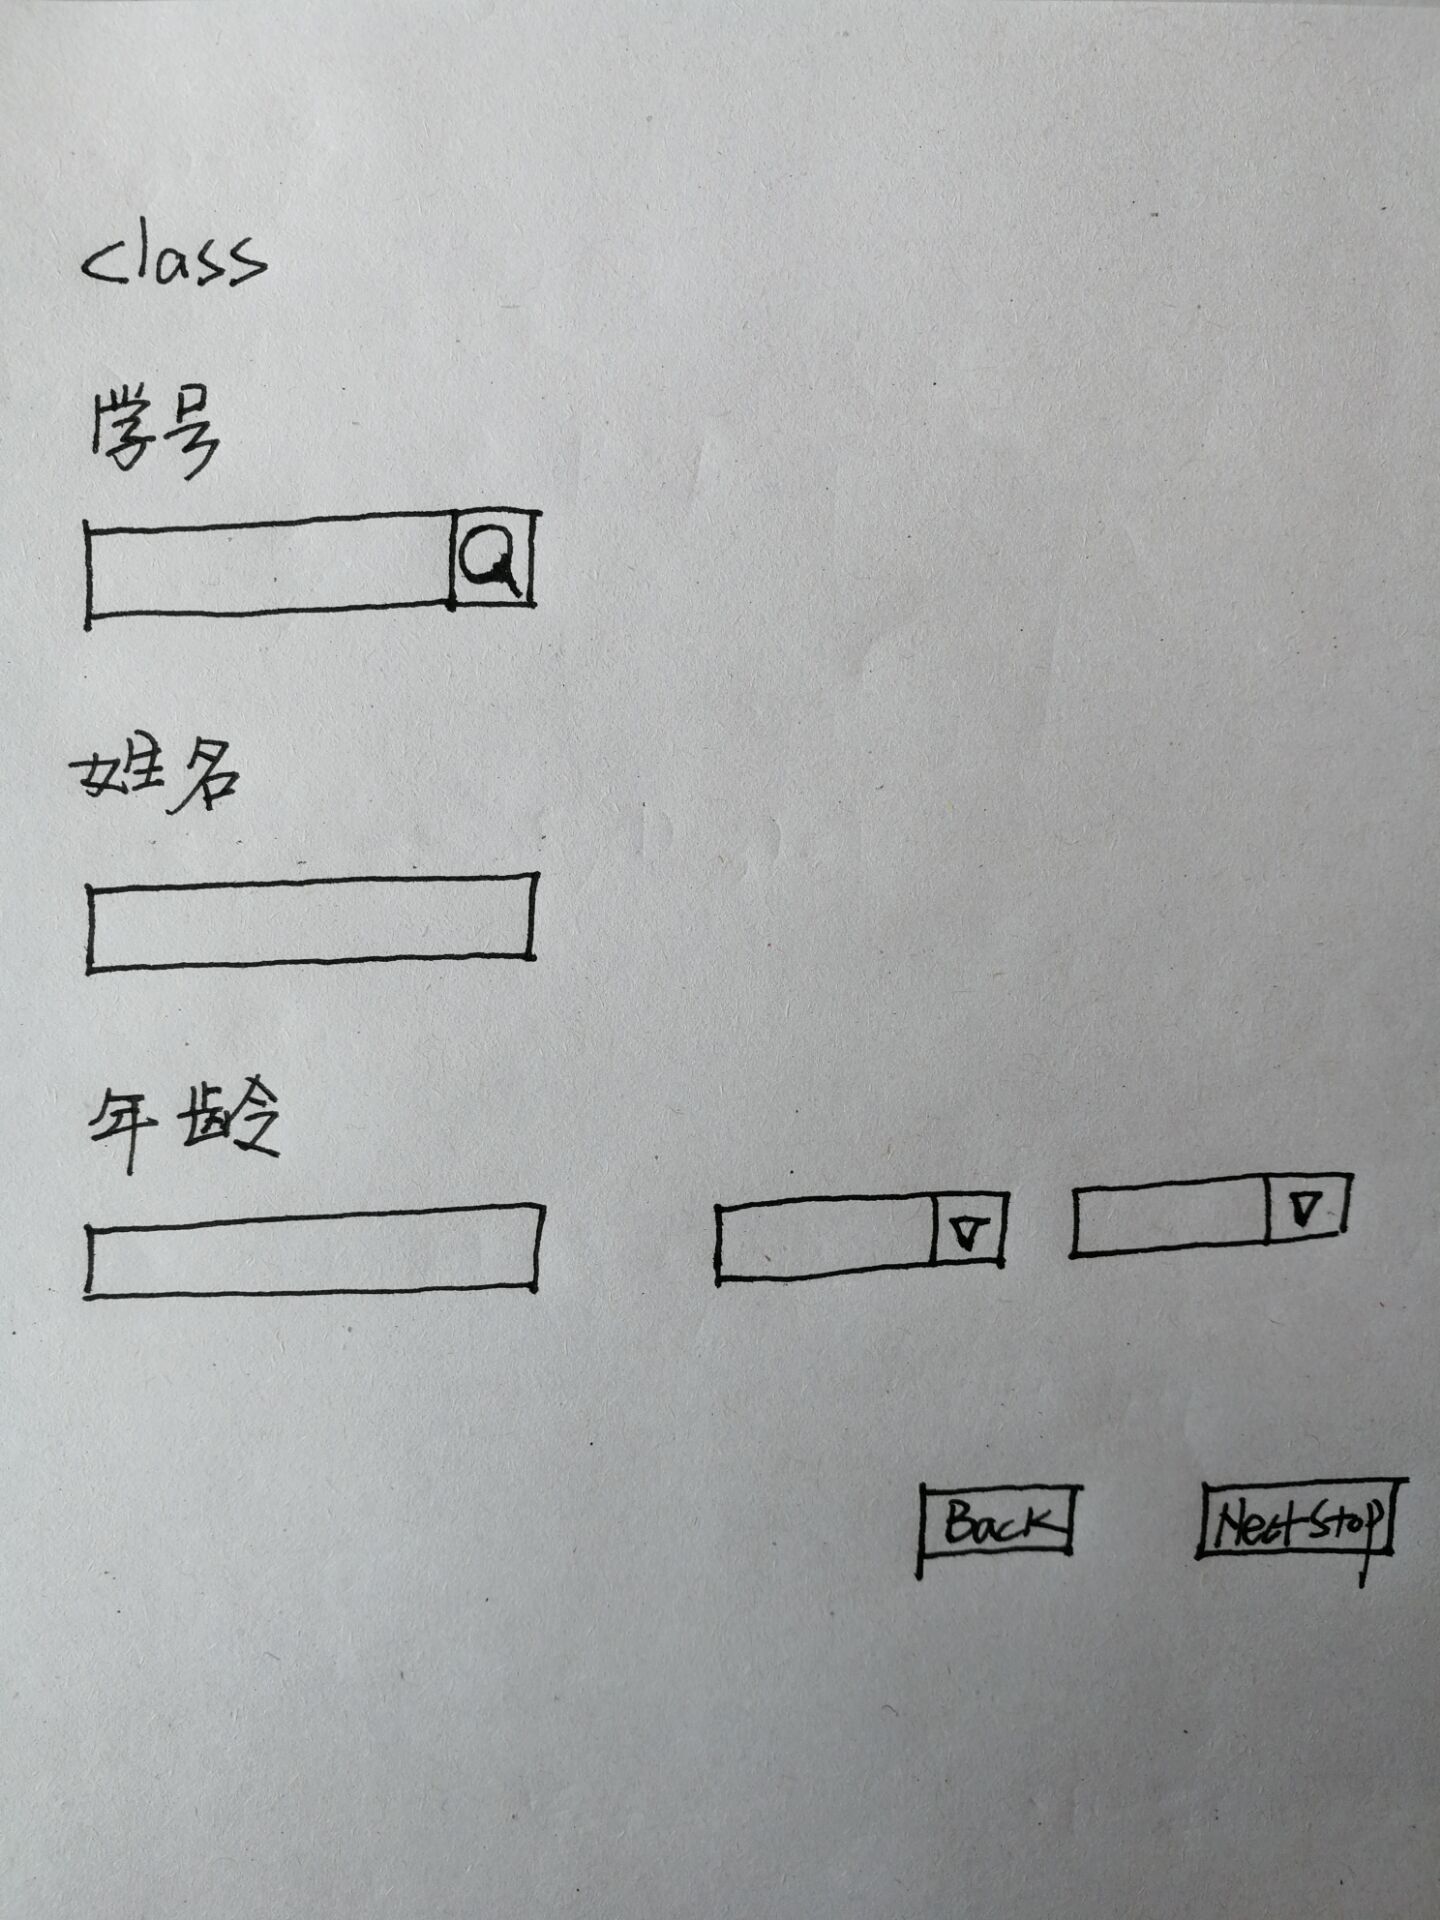 class
学号
姓名
年龄
Back
Next Stop